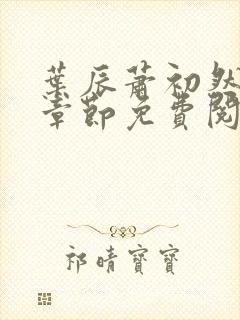 葉辰蕭初然
章節免費閱
祁晴寶寶